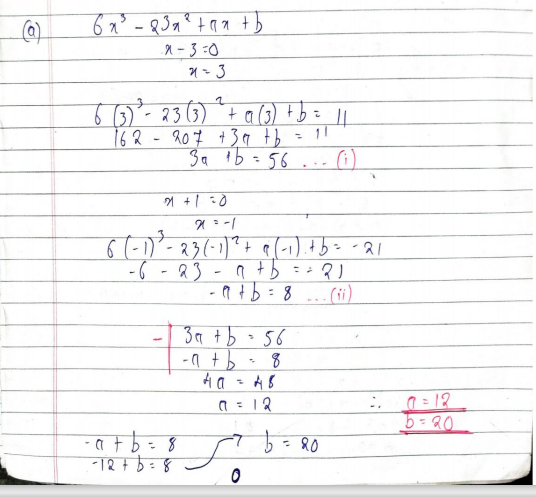 (a) 6x³ - 23x² + ax + b
x - 3 = 0
x = 3
6(3)³ - 23(3)² + a(3) + b = 11
162 - 207 + 3a + b = 11
3a + b = 56 ... (i)
x + 1 = 0
x = -1
6(-1)³ - 23(-1)² + a(-1) + b = -21
-6 - 23 - a + b = -21
-a + b = 8 ... (ii)
- | 3a + b = 56
-a + b = 8
4a = 48
a = 12 ∴ a = 12
b = 20
-a + b = 8 b = 20
-12 + b = 8
0